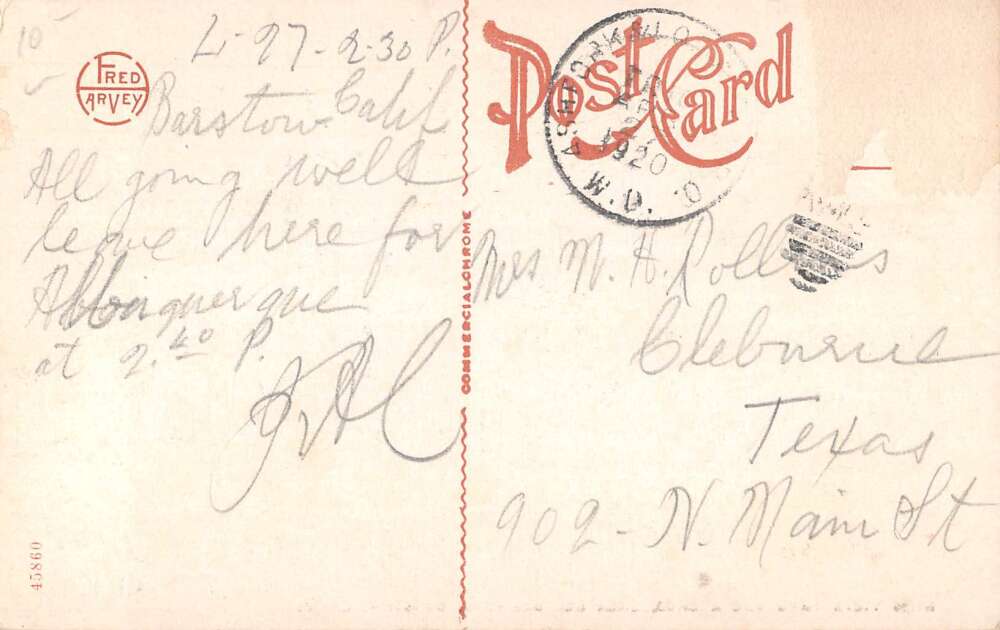 10
2-27-2-30 P.
FRED
HARVEY
Barstow Calif
All going well
leave here for
Albuquerque
at 2.40 P.
45860
COMMERCIALCHROME
Post Card
1920
Mrs. M. H. Rollins
Cleburne
Texas
902 - N. Main St